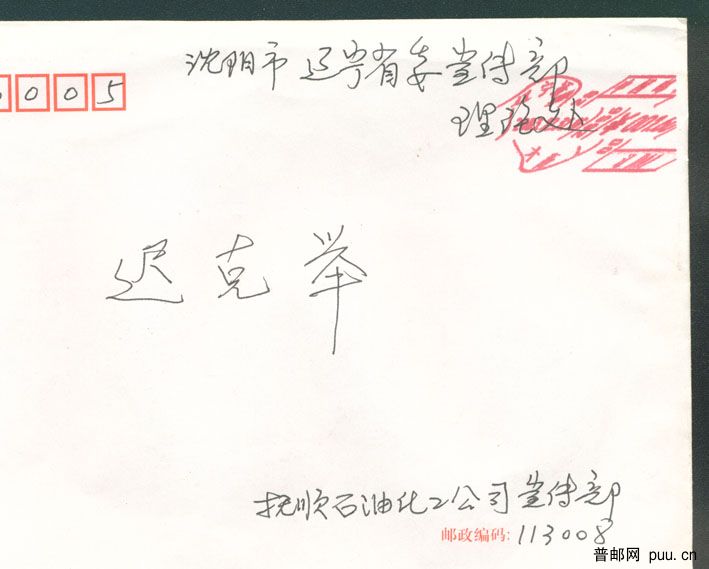 沈阳市 辽宁省委宣传部
0005
理论处
迟克举
抚顺石油化工公司宣传部
邮政编码: 113008
普邮网 puu.cn